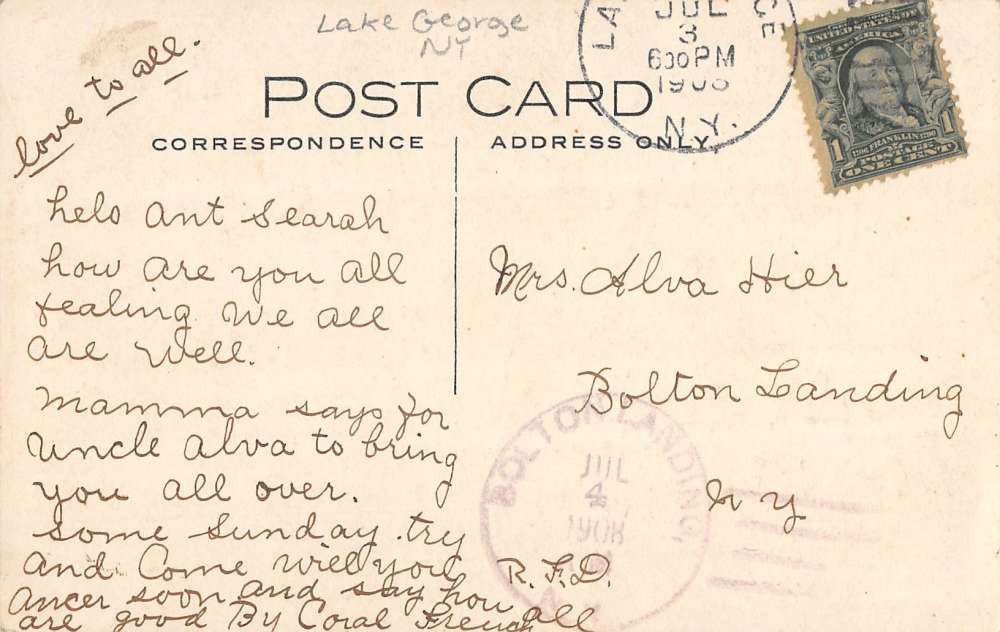 Lake George
NY
LA GE
JUL
3
630 PM
1908
N.Y.
UNITED STATES OF
AMERICA
1706 FRANKLIN 1790
1 POSTAGE 1
ONE CENT
POST CARD
CORRESPONDENCE
ADDRESS ONLY.
love to all.
helo ant Searah
how are you all
fealing We all
are well.
Mamma says for
Uncle Alva to bring
you all over.
some Sunday. try
and Come will you
ancer soon and say how all
are good By Coral French
Mrs. Alva Hier
Bolton Landing
N Y
R.F.D.
BOLTON LANDING,
JUL
4
1908